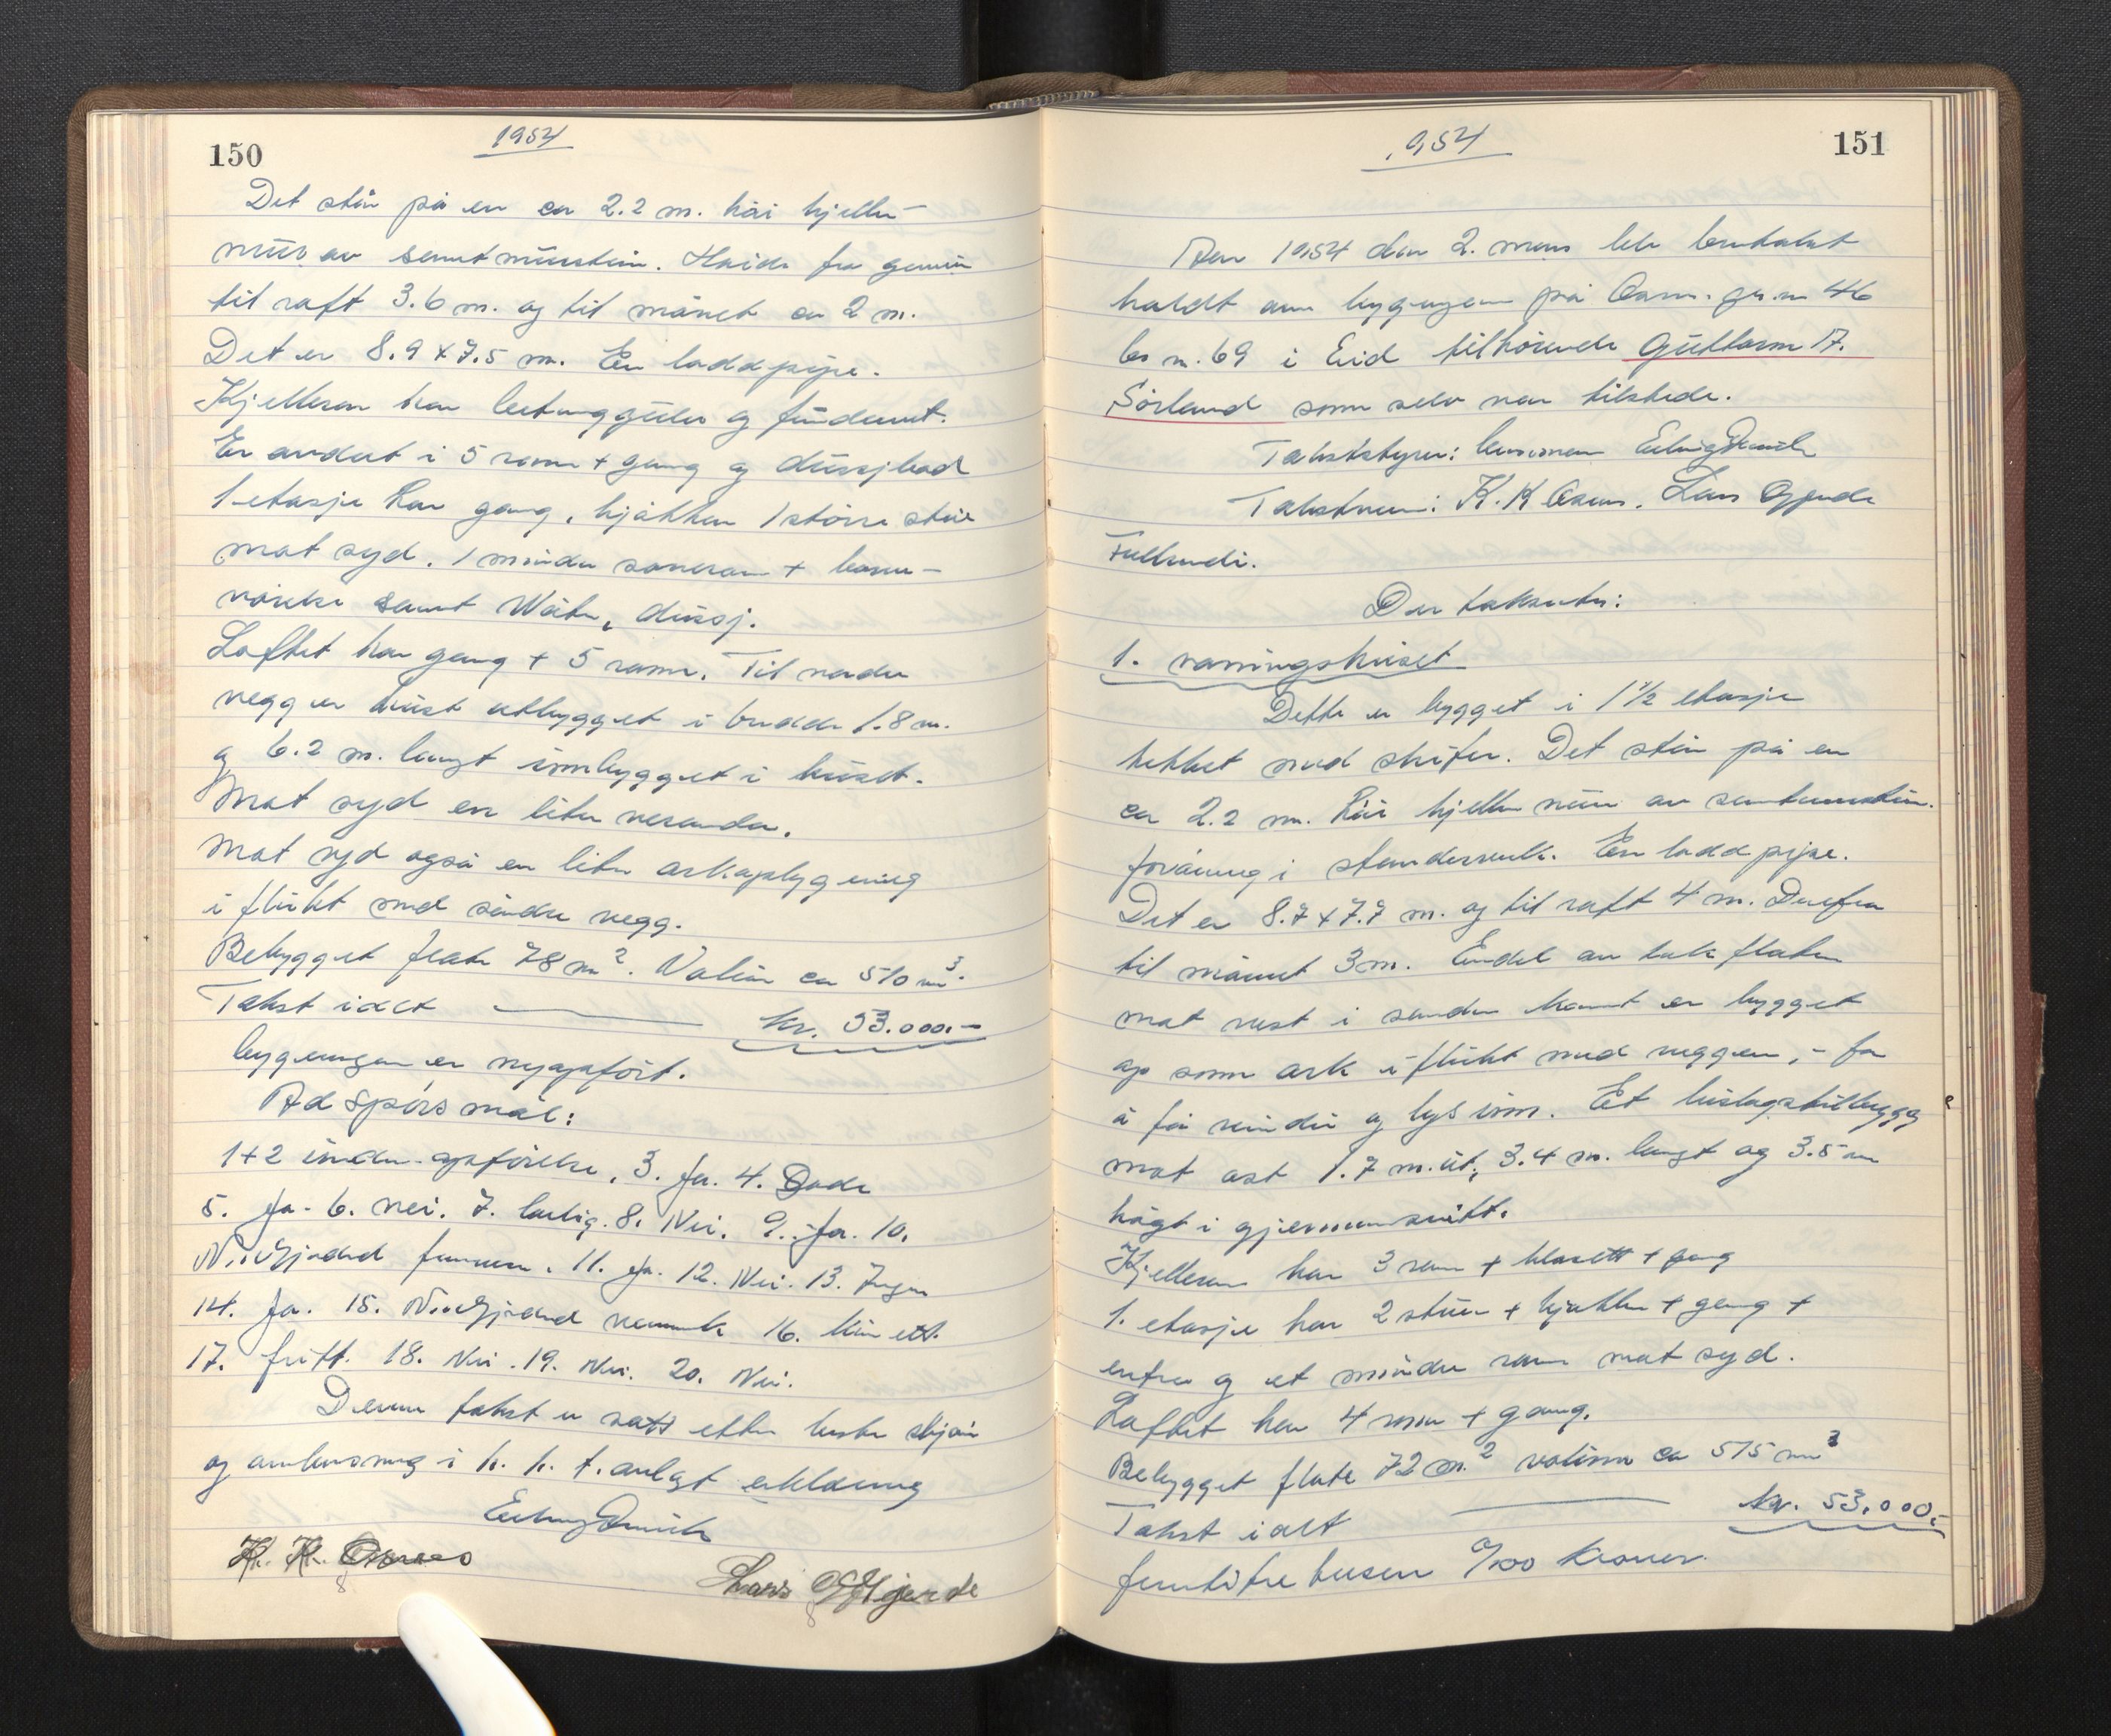 150
1954
Det står på en ca 2.2 m. höi kjeller-
mur av sementmurstein. Höide fra grunn
til raft 3.6 m. og til mönet ca 2 m.
Det er 8.9 x 7.5 m. En lödd pipe.
Kjelleren har betonggulv og fundament.
Er avdelt i 5 rom + gang og dusjbad
1 etasje har gang, kjökken 1 större stue
mot syd. 1 mindre soverom + barne-
värelse samt Wäter, dusj.
Loftet har gang + 5 rom. Til nordre
vegg er huset utbygget i bredde 1.8 m.
og 6.2 m. langt innbygget i huset.
Mot syd en liten veranda.
Mot syd også en liten arkopbygging
i flukt med söndre vegg.
Bebygget flate 78 m². Volum ca 510 m³.
Takst ialt kr. 53.000.-
bygningen er nyopfört.
Ad spörsmål:
1+2 under opförelse, 3. Ja. 4. Gode
5. Ja. 6. Nei. 7. 8. Nei. 9. Ja. 10.
N. Nordfjord 11. Ja. 12. Nei. 13. Ingen
14. Ja. 15. N. Nordfjord 16. kun ett.
17. fritt. 18. Nei. 19. Nei. 20. Nei.
Denne takst er satt efter beste skjön
og i h. h. t. avlagt erklæring
K. K. Osnes
Lars O Gjerde
151
1954
Aar 1954 den 2. mars ble branntakst
holdt over bygningen på gr. n 46
br n. 69 i Eid tilhörende Guttorm A.
Sörland som selv var tilstede.
Takstmenn: K. K Osnes. Lars O Gjerde
Der takseres:
1. våningshuset
Dette er bygget i 1 1/2 etasje
tekket med skifer. Det står på en
ca 2.2 m. höi kjeller mur av sementmurstein.
forövrig i standerverk. En lödd pipe.
Det er 8.7 x 7.7 m. og til raft 4 m. Derfra
til mönet 3 m. Endel av takflaten
mot vest i söndre kant er bygget
op som ark i flukt med veggen, - for
å få vindu og lys inn. Et bislagstilbygg
mot öst 1.7 m. ut, 3.4 m. langt og 3.5 m
högt i gjennemsnitt.
Kjelleren har 3 rom + klosett + gang
1. etasje har 2 stuer + kjökken + gang +
entre og et mindre rom mot syd.
Loftet har 4 rom + gang.
Bebygget flate 72 m.² volum ca 515 m³
Takst i alt kr. 53.000.-
femtitre tusen 0/100 Kroner.